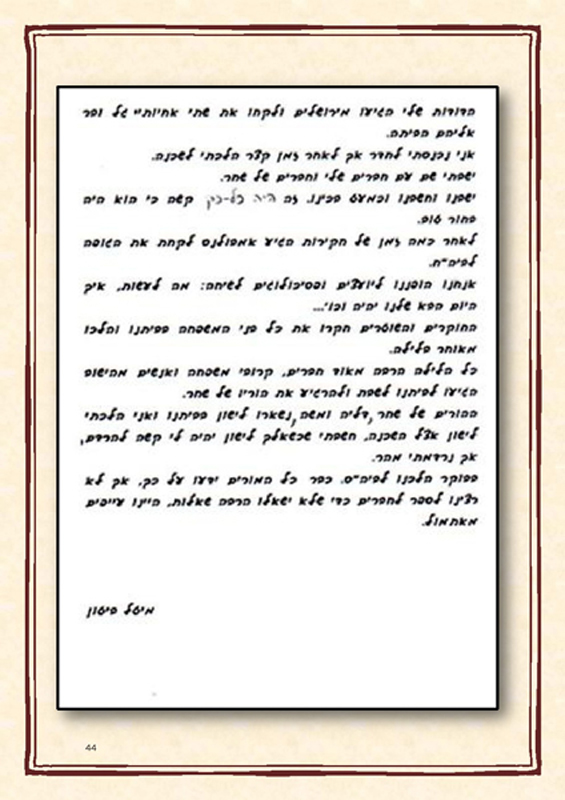 הדודות שלי הגיעו מירושלים ולקחו את שתי אחיותיי גל ופר
אליהם הביתה.
אני נכנסתי לחדר אך לאחר זמן קצר הלכתי לשכנה.
ישבתי שם עם חברים שלי וחברים של שחר.
ישבנו וחשבנו וכמעט בכינו. זה היה כל-כך קשה כי הוא היה
בחור טוב.
לאחר כמה זמן של חקירות הגיע אמבולנס לקחת את הגופה
לביה״ח.
אנחנו הופננו ליועצים ופסיכולוגים לשיחה: מה לעשות, איך
היום הבא שלנו יהיה וכו'...
החוקרים והשוטרים חקרו את כל בני המשפחה בביתנו והלכו
מאוחר בלילה.
כל הלילה הרבה מאוד חברים, קרובי משפחה ואנשים מהישוב
הגיעו לביתנו לשבת ולהרגיע את הוריו של שחר.
ההורים של שחר, דליה ומשה, נשארו לישון בביתנו ואני הלכתי
לישון אצל השכנה, חשבתי שכשאלך לישון יהיה לי קשה להרדם,
אך נרדמתי מהר.
בבוקר הלכנו לביה״ס. כבר כל המורים ידעו על כך, אך לא
רצינו לספר לחברים כדי שלא ישאלו הרבה שאלות, היינו עייפים
מאתמול.
מיטל ביטון
44